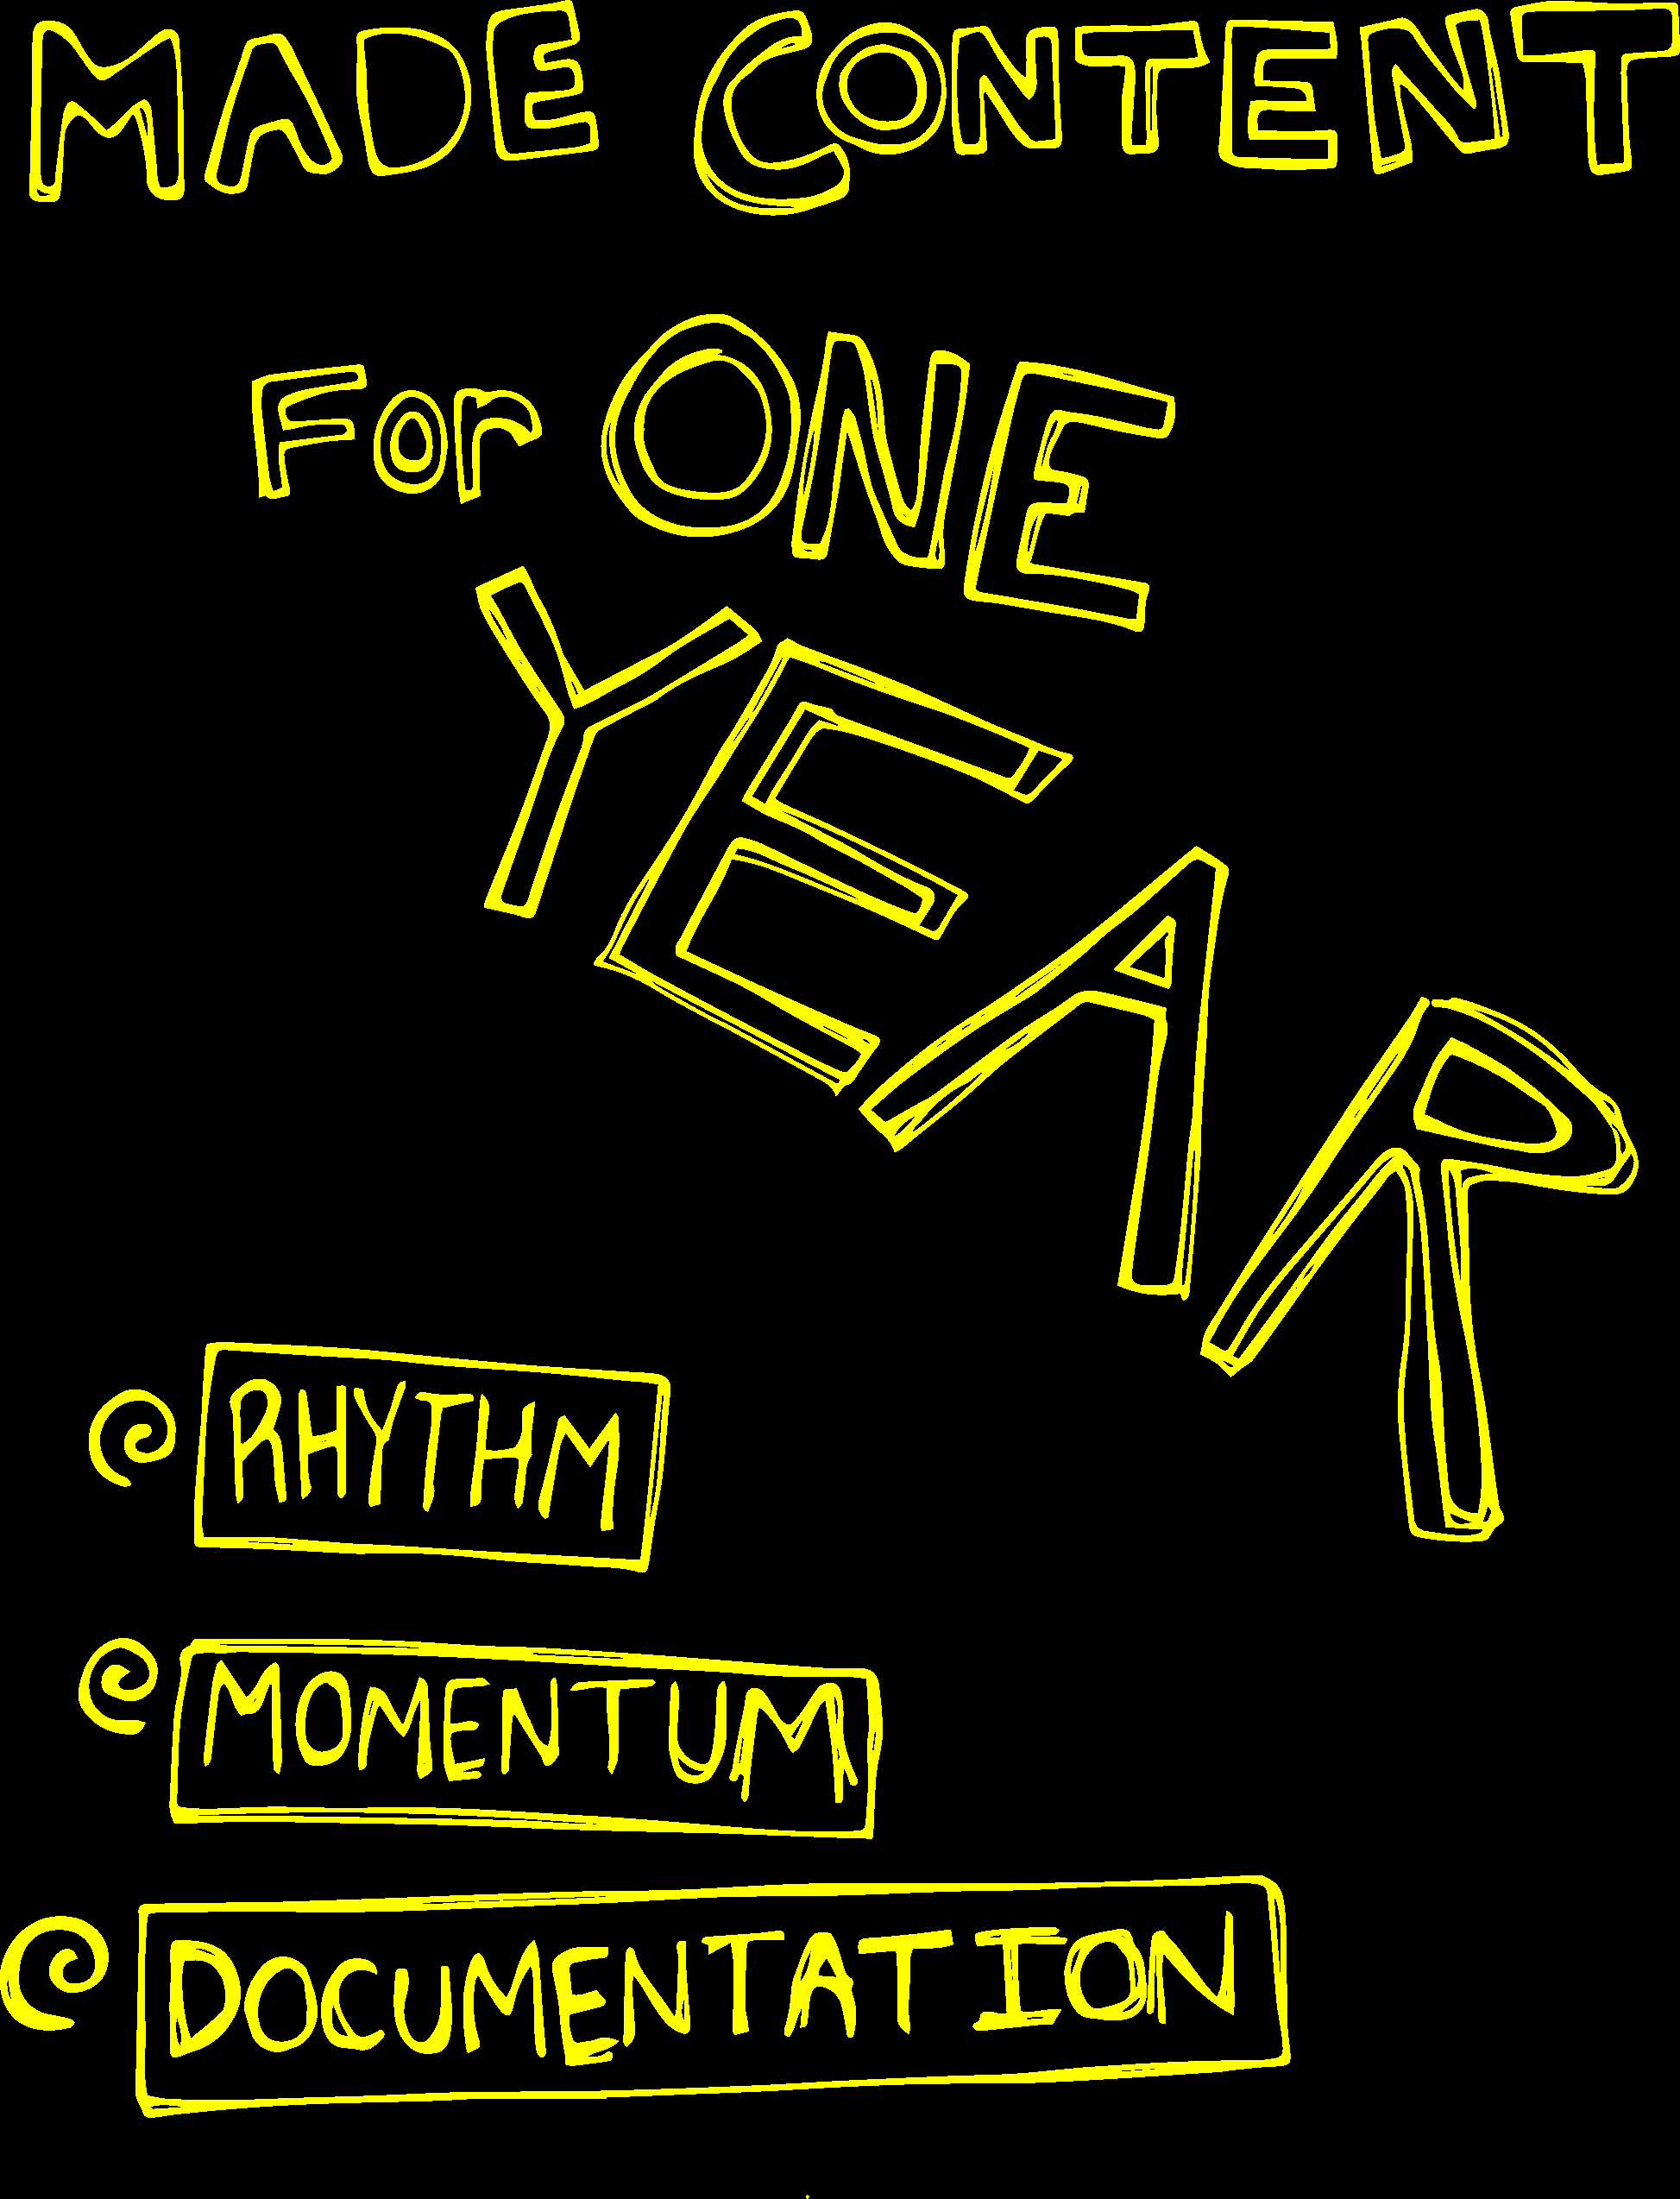 MADE CONTENT
For ONE
YEAR
RHYTHM
MOMENTUM
DOCUMENTATION